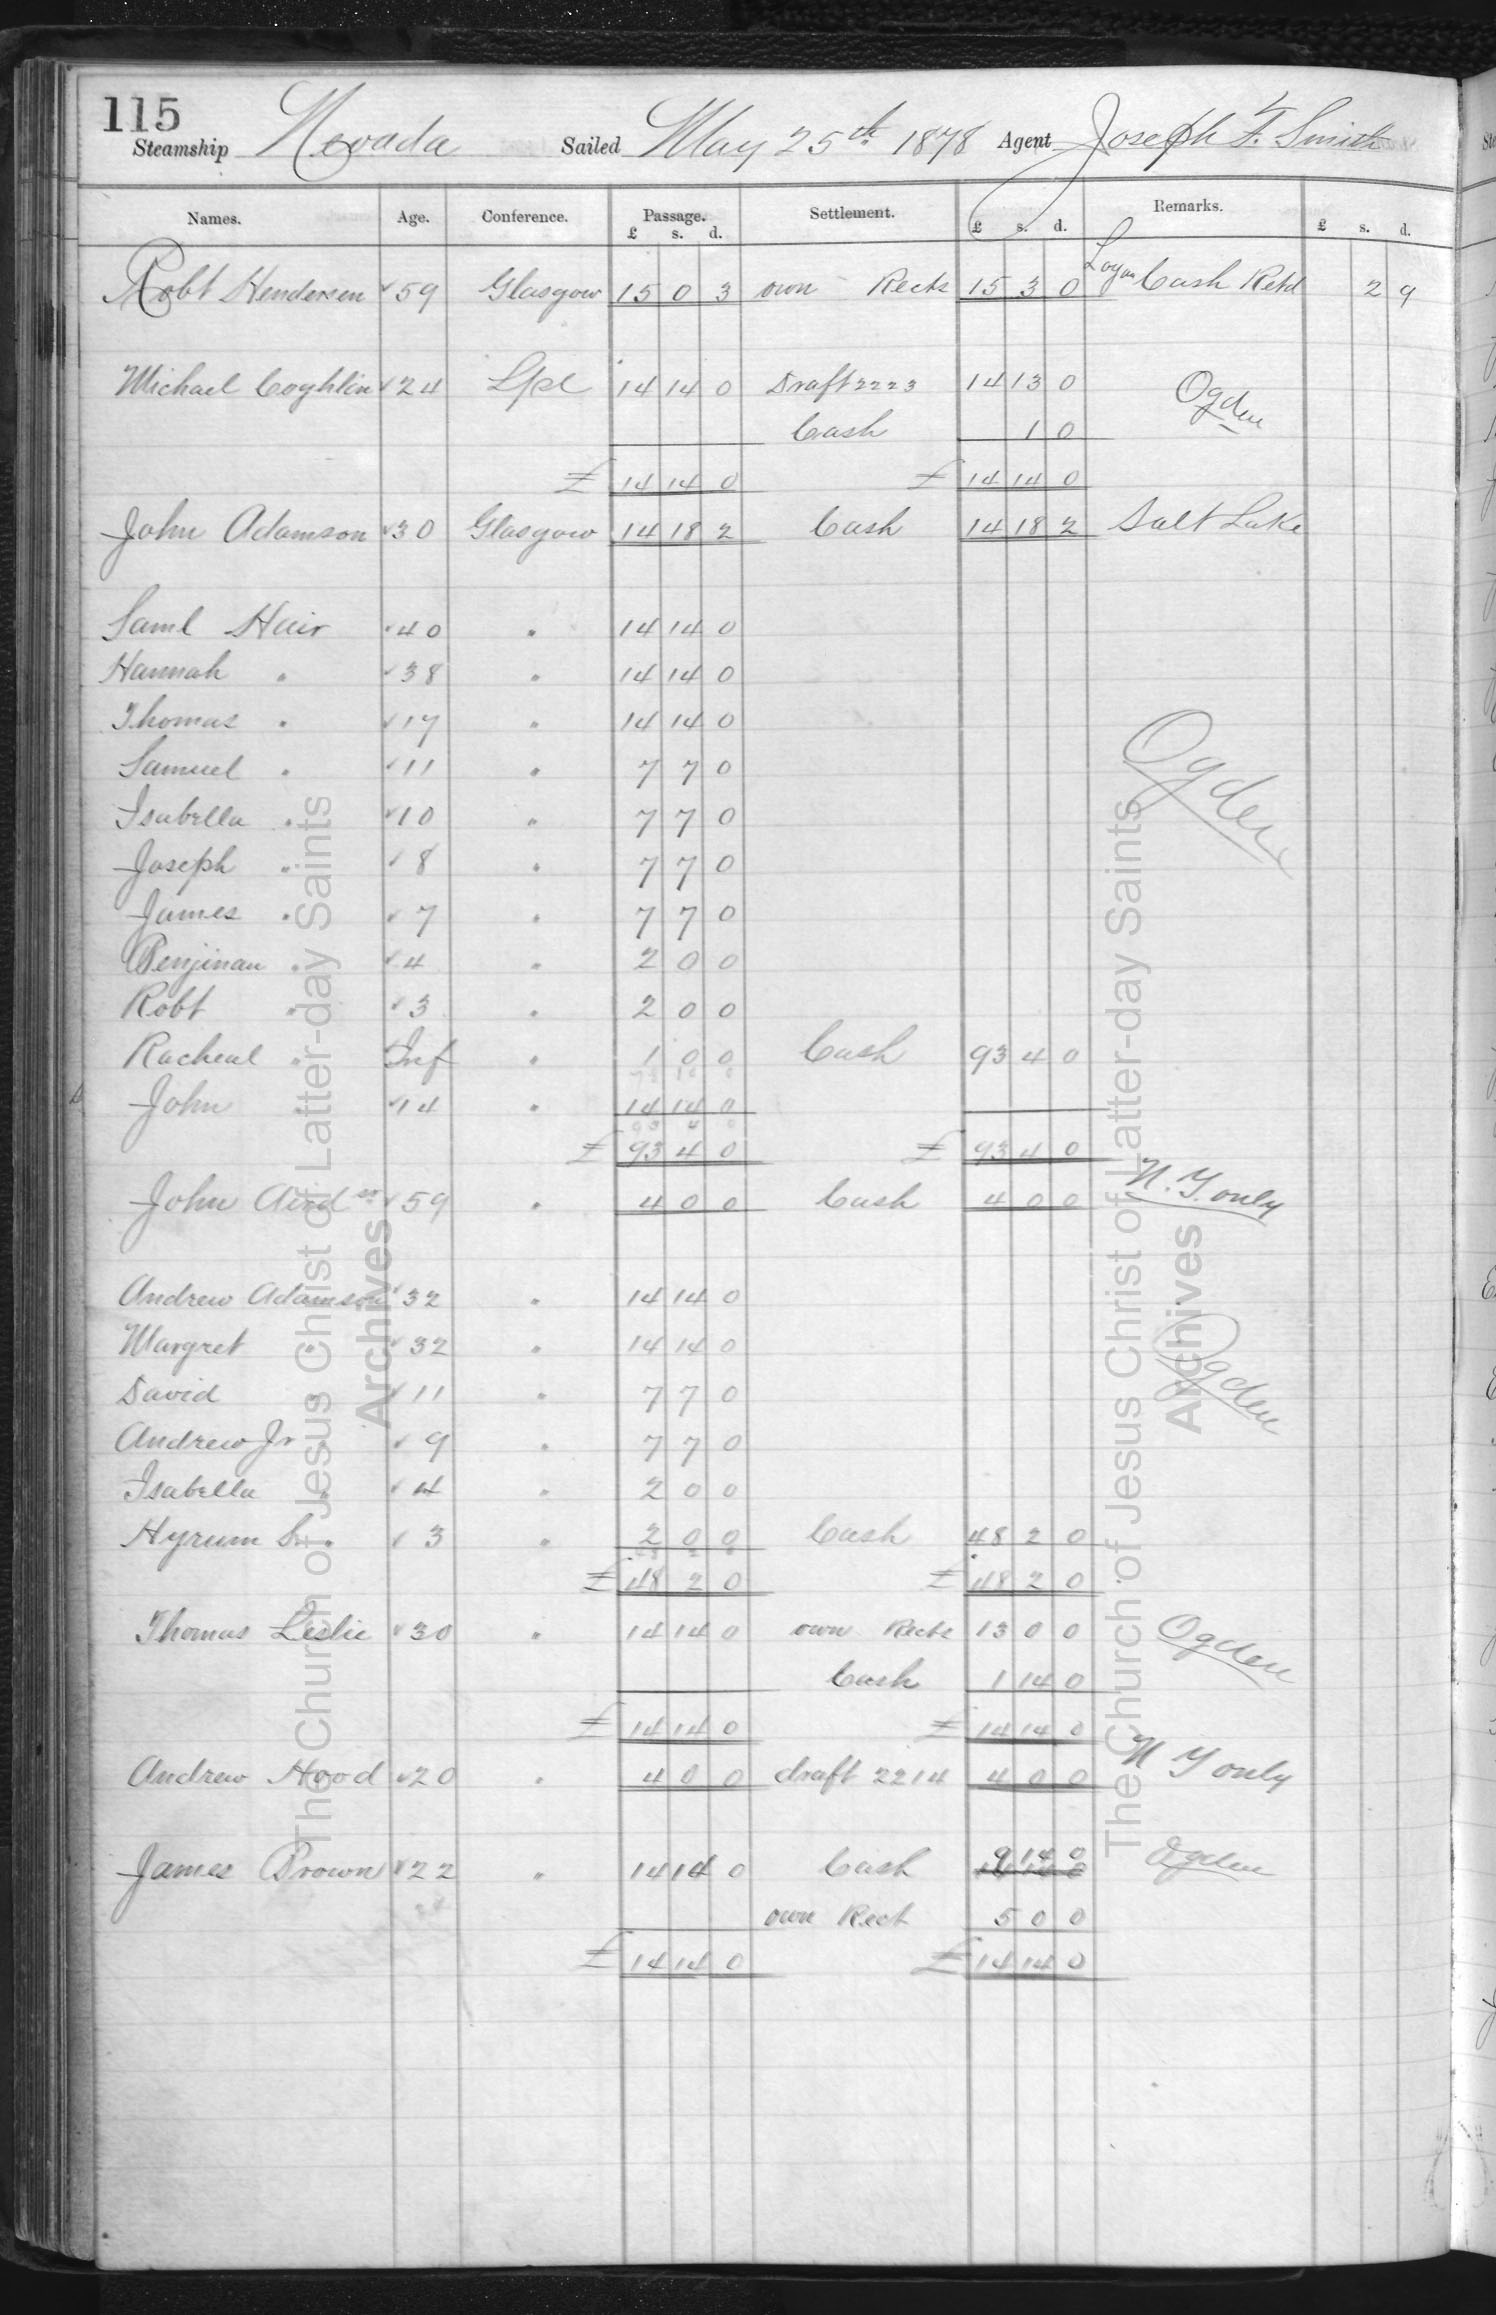 115
Steamship Nevada Sailed May 25th 1878 Agent Joseph F. Smith
Names. Age. Conference. Passage. Settlement. Remarks.
£ s. d. £ s. d. £ s. d.
Robt Hendersen 59 Glasgow 15 0 3 own Rects 15 3 0 Logan Cash Retd 2 9
Michael Coghlin 24 Lpl 14 14 0 Draft 2223 14 13 0 Ogden
Cash 1 0
£ 14 14 0 £ 14 14 0
John Adamson 30 Glasgow 14 18 2 Cash 14 18 2 Salt Lake
Saml Hair 40 " 14 14 0
Hannah " 38 " 14 14 0
Thomas " 17 " 14 14 0
Samuel " 11 " 7 7 0
Isabella " 10 " 7 7 0 Ogden
Joseph " 8 " 7 7 0
James " 7 " 7 7 0
Benjiman " 4 " 2 0 0
Robt " 3 " 2 0 0
Racheal " Inf " 1 0 0 Cash 93 4 0
John " 14 " 14 14 0
£ 93 4 0 £ 93 4 0
John Aird sr 59 " 4 0 0 Cash 4 0 0 N. Y. only
Andrew Adamson 32 " 14 14 0
Margret " 32 " 14 14 0
David " 11 " 7 7 0 Ogden
Andrew Jr " 9 " 7 7 0
Isabella " 4 " 2 0 0
Hyrum S. " 3 " 2 0 0 Cash 48 2 0
£ 48 2 0 £ 48 2 0
Thomas Leslie 30 " 14 14 0 own Rects 13 0 0 Ogden
Cash 1 14 0
£ 14 14 0 £ 14 14 0
Andrew Hood 20 " 4 0 0 draft 2214 4 0 0 N Y only
James Brown 22 " 14 14 0 Cash 9 14 0 Ogden
own Rect 5 0 0
£ 14 14 0 £ 14 14 0
The Church of Jesus Christ of Latter-day Saints
Archives
The Church of Jesus Christ of Latter-day Saints
Archives